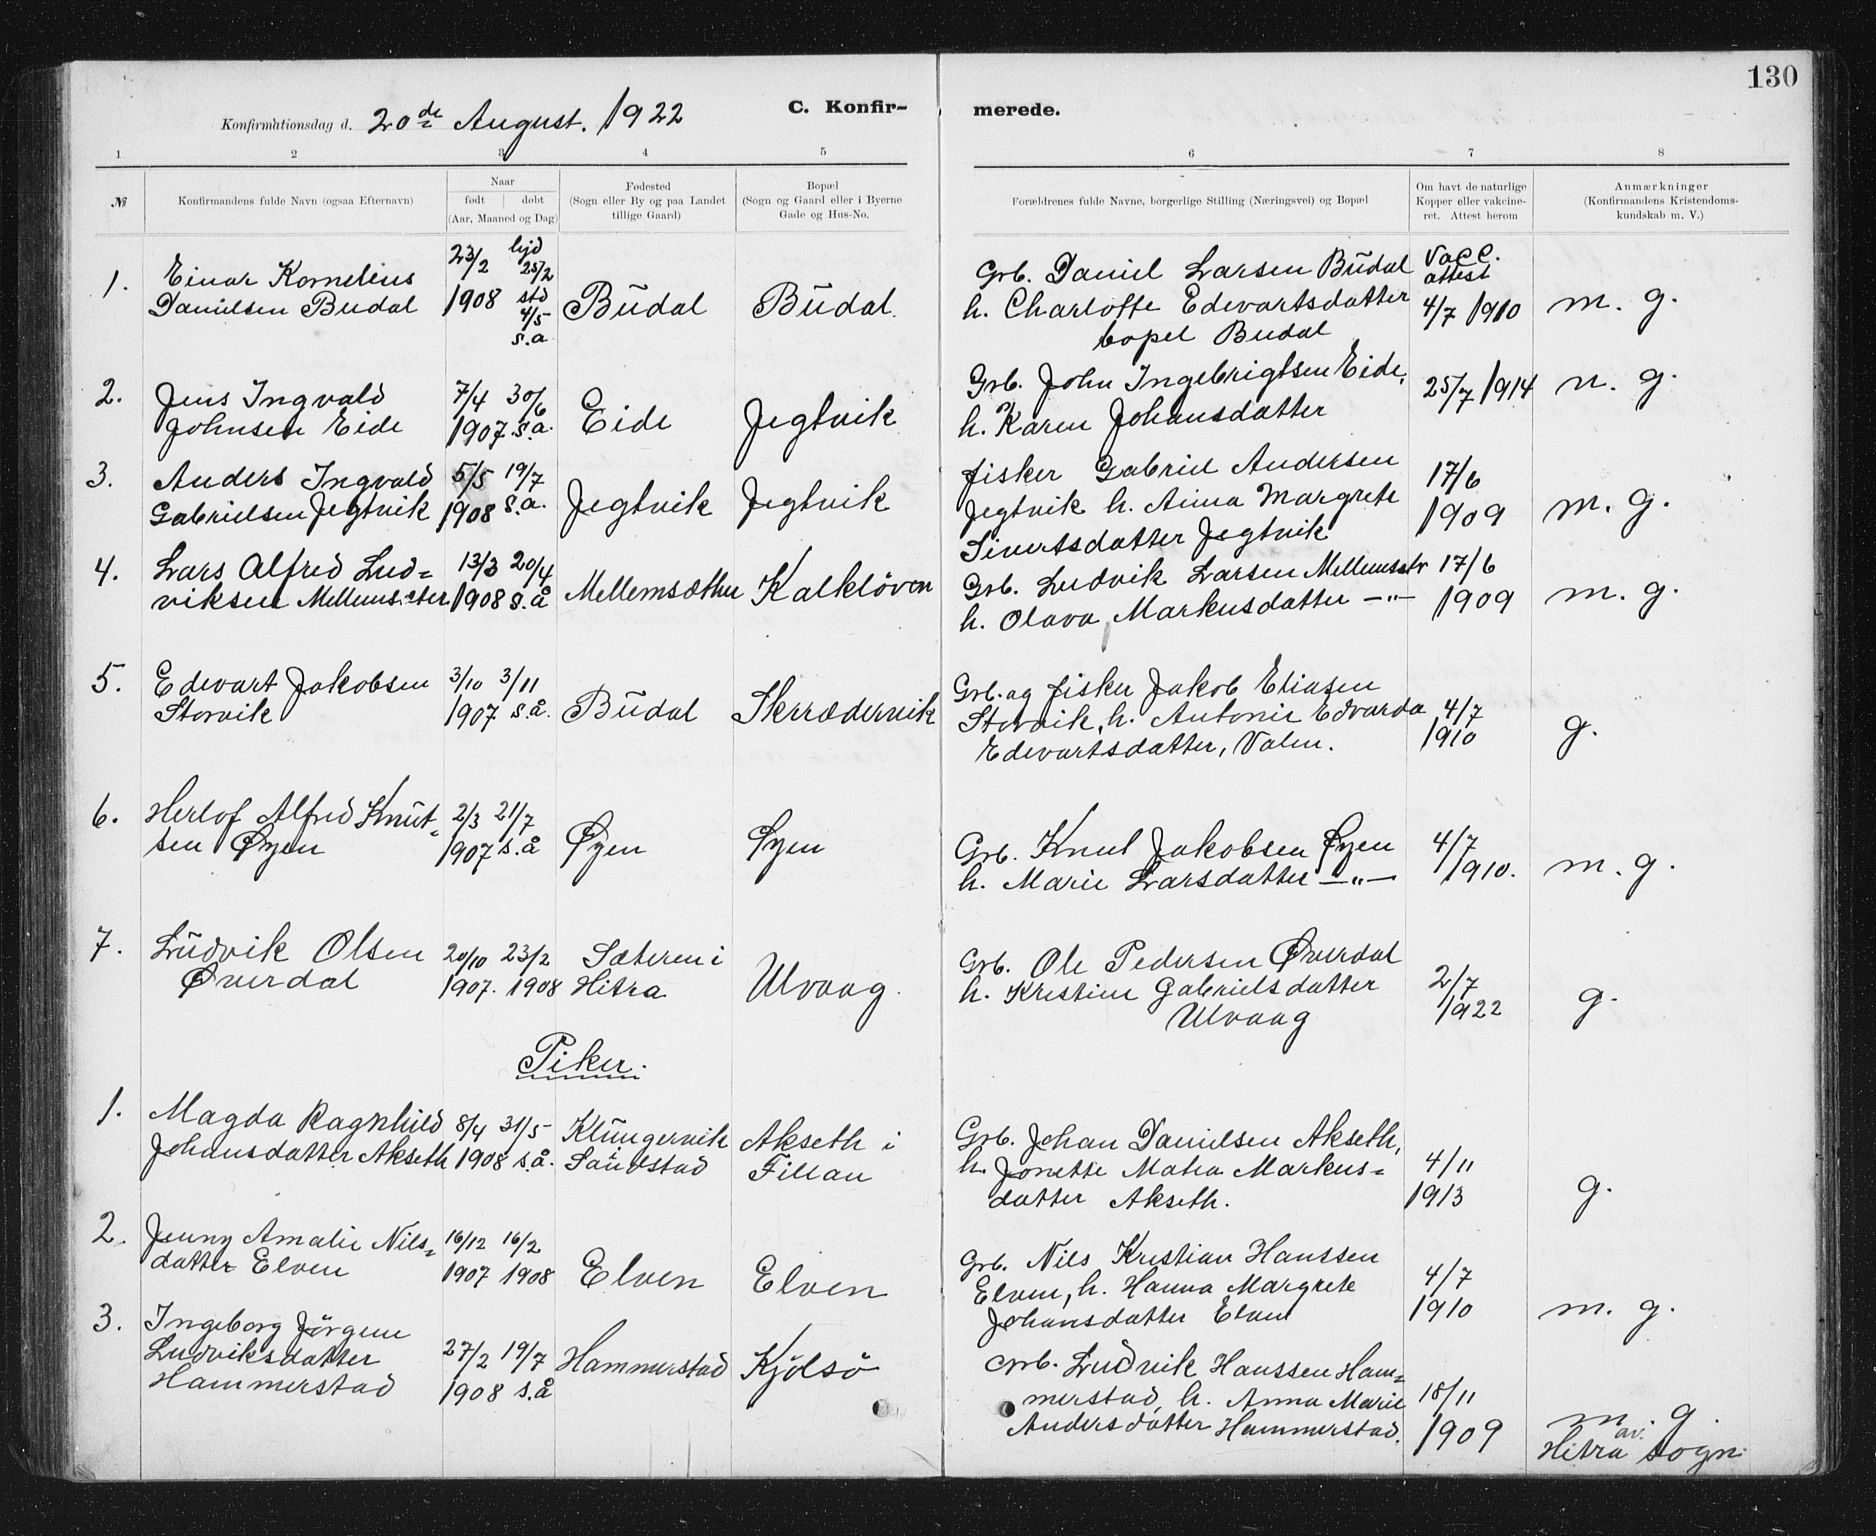 130
C. Konfir- merede.
Konfirmationsdag d. 20de August. 1922
1 2 3 4 5 6 7 8
№
Konfirmandens fulde Navn (ogsaa Efternavn)
Naar
født døbt
(Aar, Maaned og Dag)
Fødested
(Sogn eller By og paa Landet
tillige Gaard)
Bopæl
(Sogn og Gaard eller i Byerne
Gade og Hus-No.
Forældrenes fulde Navne, borgerlige Stilling (Næringsvei) og Bopæl
Om havt de naturlige
Kopper eller vakcine-
ret. Attest herom
Anmærkninger
(Konfirmandens Kristendoms-
kundskab m. V.)
1. Einar Kornelius
Danielsen Budal
23/2
1908
hjd
25/2
std
4/5
s.a
Budal
Budal.
Grb. Daniel Larsen Budal
h. Charlotte Edevartsdatter
bopel Budal
Vacc.
attest
4/7 1910
m. g.
2. Jens Ingvald
Johnsen Eide
7/4 30/6
1907 s.a.
Eide
Jegtvik
Grb. John Ingebrigtsen Eide,
h. Karen Johansdatter
25/7 1914
n. g.
3. Anders Ingvald
Gabrielsen Jegtvik
5/5 19/7
1908 s.a.
Jegtvik
Jegtvik
fisker Gabriel Andersen
Jegtvik h. Anna Margrete
Sivertsdatter Jegtvik
17/6
1909
m. g.
4. Lars Alfred Lud=
viksen Mellemsæter
13/3 20/4
1908 s.å
Mellemsæther
Kalkløven
Grb. Ludvik Larsen Mellemsetr
h. Olava Markusdatter —"—
17/6
1909
m. g.
5. Edevart Jakobsen
Storvik
3/10 3/11
1907 s.å.
Budal
Skerrædervik
Grb. og fisker Jakob Eliasen
Storvik, h. Antonie Edvarda
Edevartsdatter, Valen.
4/7
1910
g.
6. Herlof Alfred Knut=
sen Øyen
2/3 21/7
1907 s.å
Øyen
Øyen
Grb. Knut Jakobsen Øyen
h. Marie Larsdatter —"—
4/7
1910.
m. g.
7. Ludvik Olsen
Øverdal
20/10 23/2
1907. 1908
Sæteren i
Hitra
Ulvaag.
Grb. Ole Pedersen Øverdal
h. Kristine Gabrielsdatter
Ulvaag
2/7
1922
g.
Piker.
1. Magda Ragnhild
Johansdatter Akseth
8/4 31/5
1908 s.å.
Klungervik
Sandstad
Akseth i
Fillan
Grb. Johan Danielsen Akseth,
h. Jonette Matea Markus=
datter Akseth.
4/11
1913
g.
2. Jenny Amalie Nils=
datter Elven
16/12 16/2
1907 1908
Elven
Elven
Grb. Nils Kristian Hanssen
Elven, h. Hanna Margrete
Johansdatter Elven
4/7
1910
m. g.
3. Ingeborg Jørgine
Ludviksdatter
Hammerstad
27/2 19/7
1908 s.å
Hammerstad
Kjølsø
Grb. Ludvik Hanssen Ham=
merstad, h. Anna Marie
Andersdatter Hammerstad.
18/11
1909
m. g.
av.
Hitra sogn.